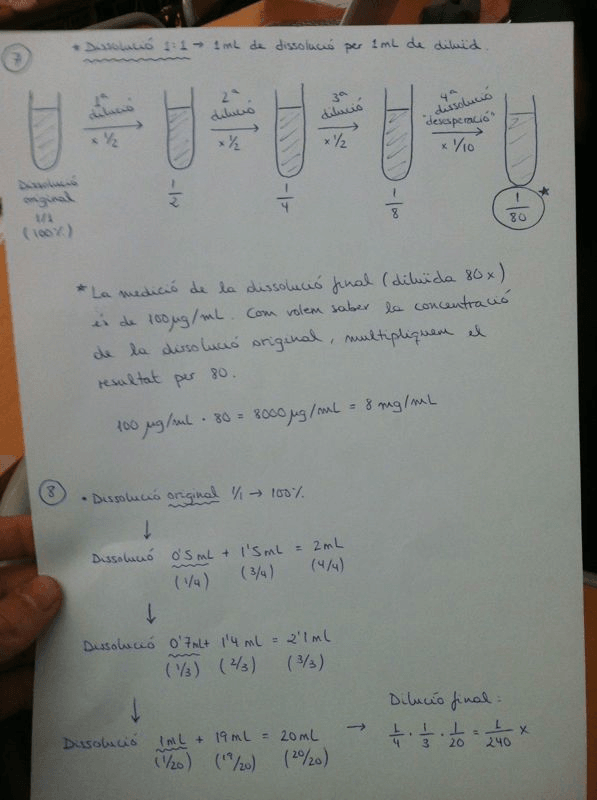 7
* Dissolució 1:1 → 1mL de dissolució per 1mL de diluïd.
1ª dilució x 1/2
2ª dilució x 1/2
3ª dilució x 1/2
4ª dissolució "desesperació" x 1/10
Dissolució original 1/1 (100%)
1/2
1/4
1/8
1/80 *
* La medició de la dissolució final (diluïda 80x)
és de 100 µg/mL. Com volem saber la concentració
de la dissolució original, multipliquem el
resultat per 80.
100 µg/mL · 80 = 8000 µg/mL = 8 mg/mL
8
• Dissolució original 1/1 → 100%.
↓
Dissolució 0'5 mL + 1'5 mL = 2 mL
(1/4) (3/4) (4/4)
↓
Dissolució 0'7mL + 1'4 mL = 2'1 mL
(1/3) (2/3) (3/3)
↓
Dissolució 1mL + 19 mL = 20mL →
(1/20) (19/20) (20/20)
Dilució final:
1/4 · 1/3 · 1/20 = 1/240 x